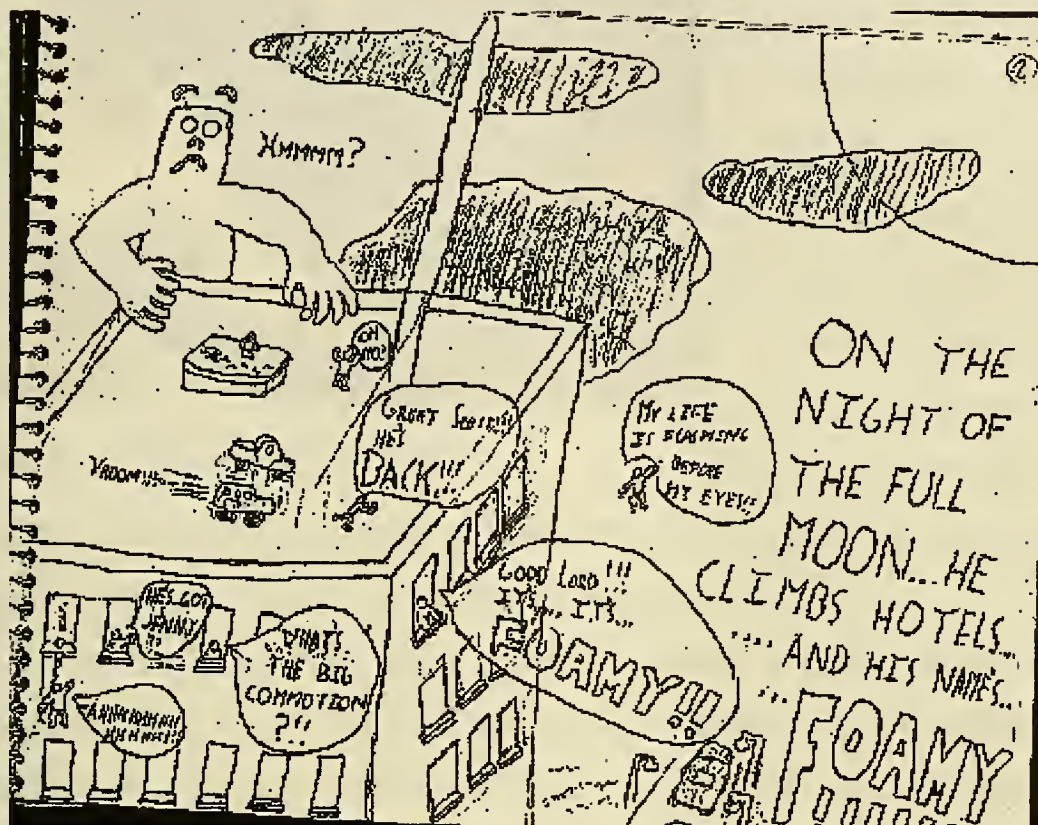 2
HMMMM?
OH
NO!
GREAT
HE'S
BACK!!!
VROOM!!!
MY LIFE
IS FLASHING
BEFORE
MY EYES!!
ON THE
NIGHT OF
THE FULL
MOON...HE
CLIMBS HOTELS...
....AND HIS NAME'S..
...FOAMY
GOOD LORD!!!
IT'S... IT'S...
FOAMY!!
HE'S GOT
JENNY
!!
WHAT'S
THE BIG
COMMOTION
?!!